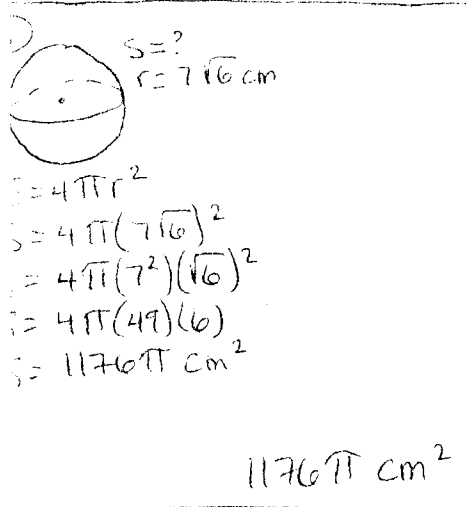 S=?
r=7√6 cm
S=4πr²
S=4π(7√6)²
=4π(7²)(√6)²
=4π(49)(6)
S=1176π cm²
1176π cm²